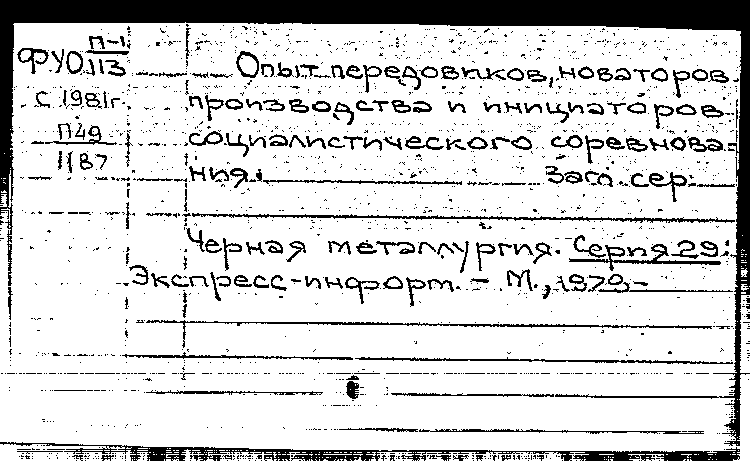 П-1
ФУО113
с 1981г.
П49
1187
Опыт передовиков, новаторов
производства и инициаторов
социалистического соревнова-
ния.
Заг. сер:
Черная металлургия. Серия 29:
Экспресс-информ. - М., 1979-